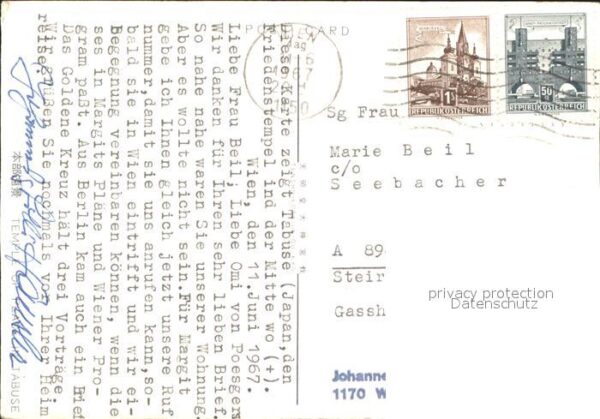 POST CARD
Diese Karte zeigt Tabuse (Japan, den
Friedenstempel in der Mitte wo (+).
Wien, den 11.Juni 1967.
Liebe Frau Beil, Liebe Omi von Poesgers
Wir danken für Ihren sehr lieben Brief.
So nahe nahe waren Sie unserer Wohnung.
Aber es wollte nicht sein. Für Margit
gebe ich Ihnen gleich jetzt unsere Ruf
nummer, damit sie uns anrufen kann, so-
bald sie in Wien eintrifft und wir ei-
Begegnung vereinbaren können, wenn die
ses in Margits Pläne und Wiener Pro-
gram paßt. Aus Berlin kam auch ein Brief
Das Goldene Kreuz hält drei Vorträge.
Wir grüßen Sie nochmals vor Ihrer Heim
reise.
TABUSE
WIEN
REPUBLIK ÖSTERREICH
REPUBLIK ÖSTERREICH
50
Sg Frau
Marie Beil
c/o
Seebacher
A 89
Steir
Gassh
privacy protection
Datenschutz
Johanne
1170 W